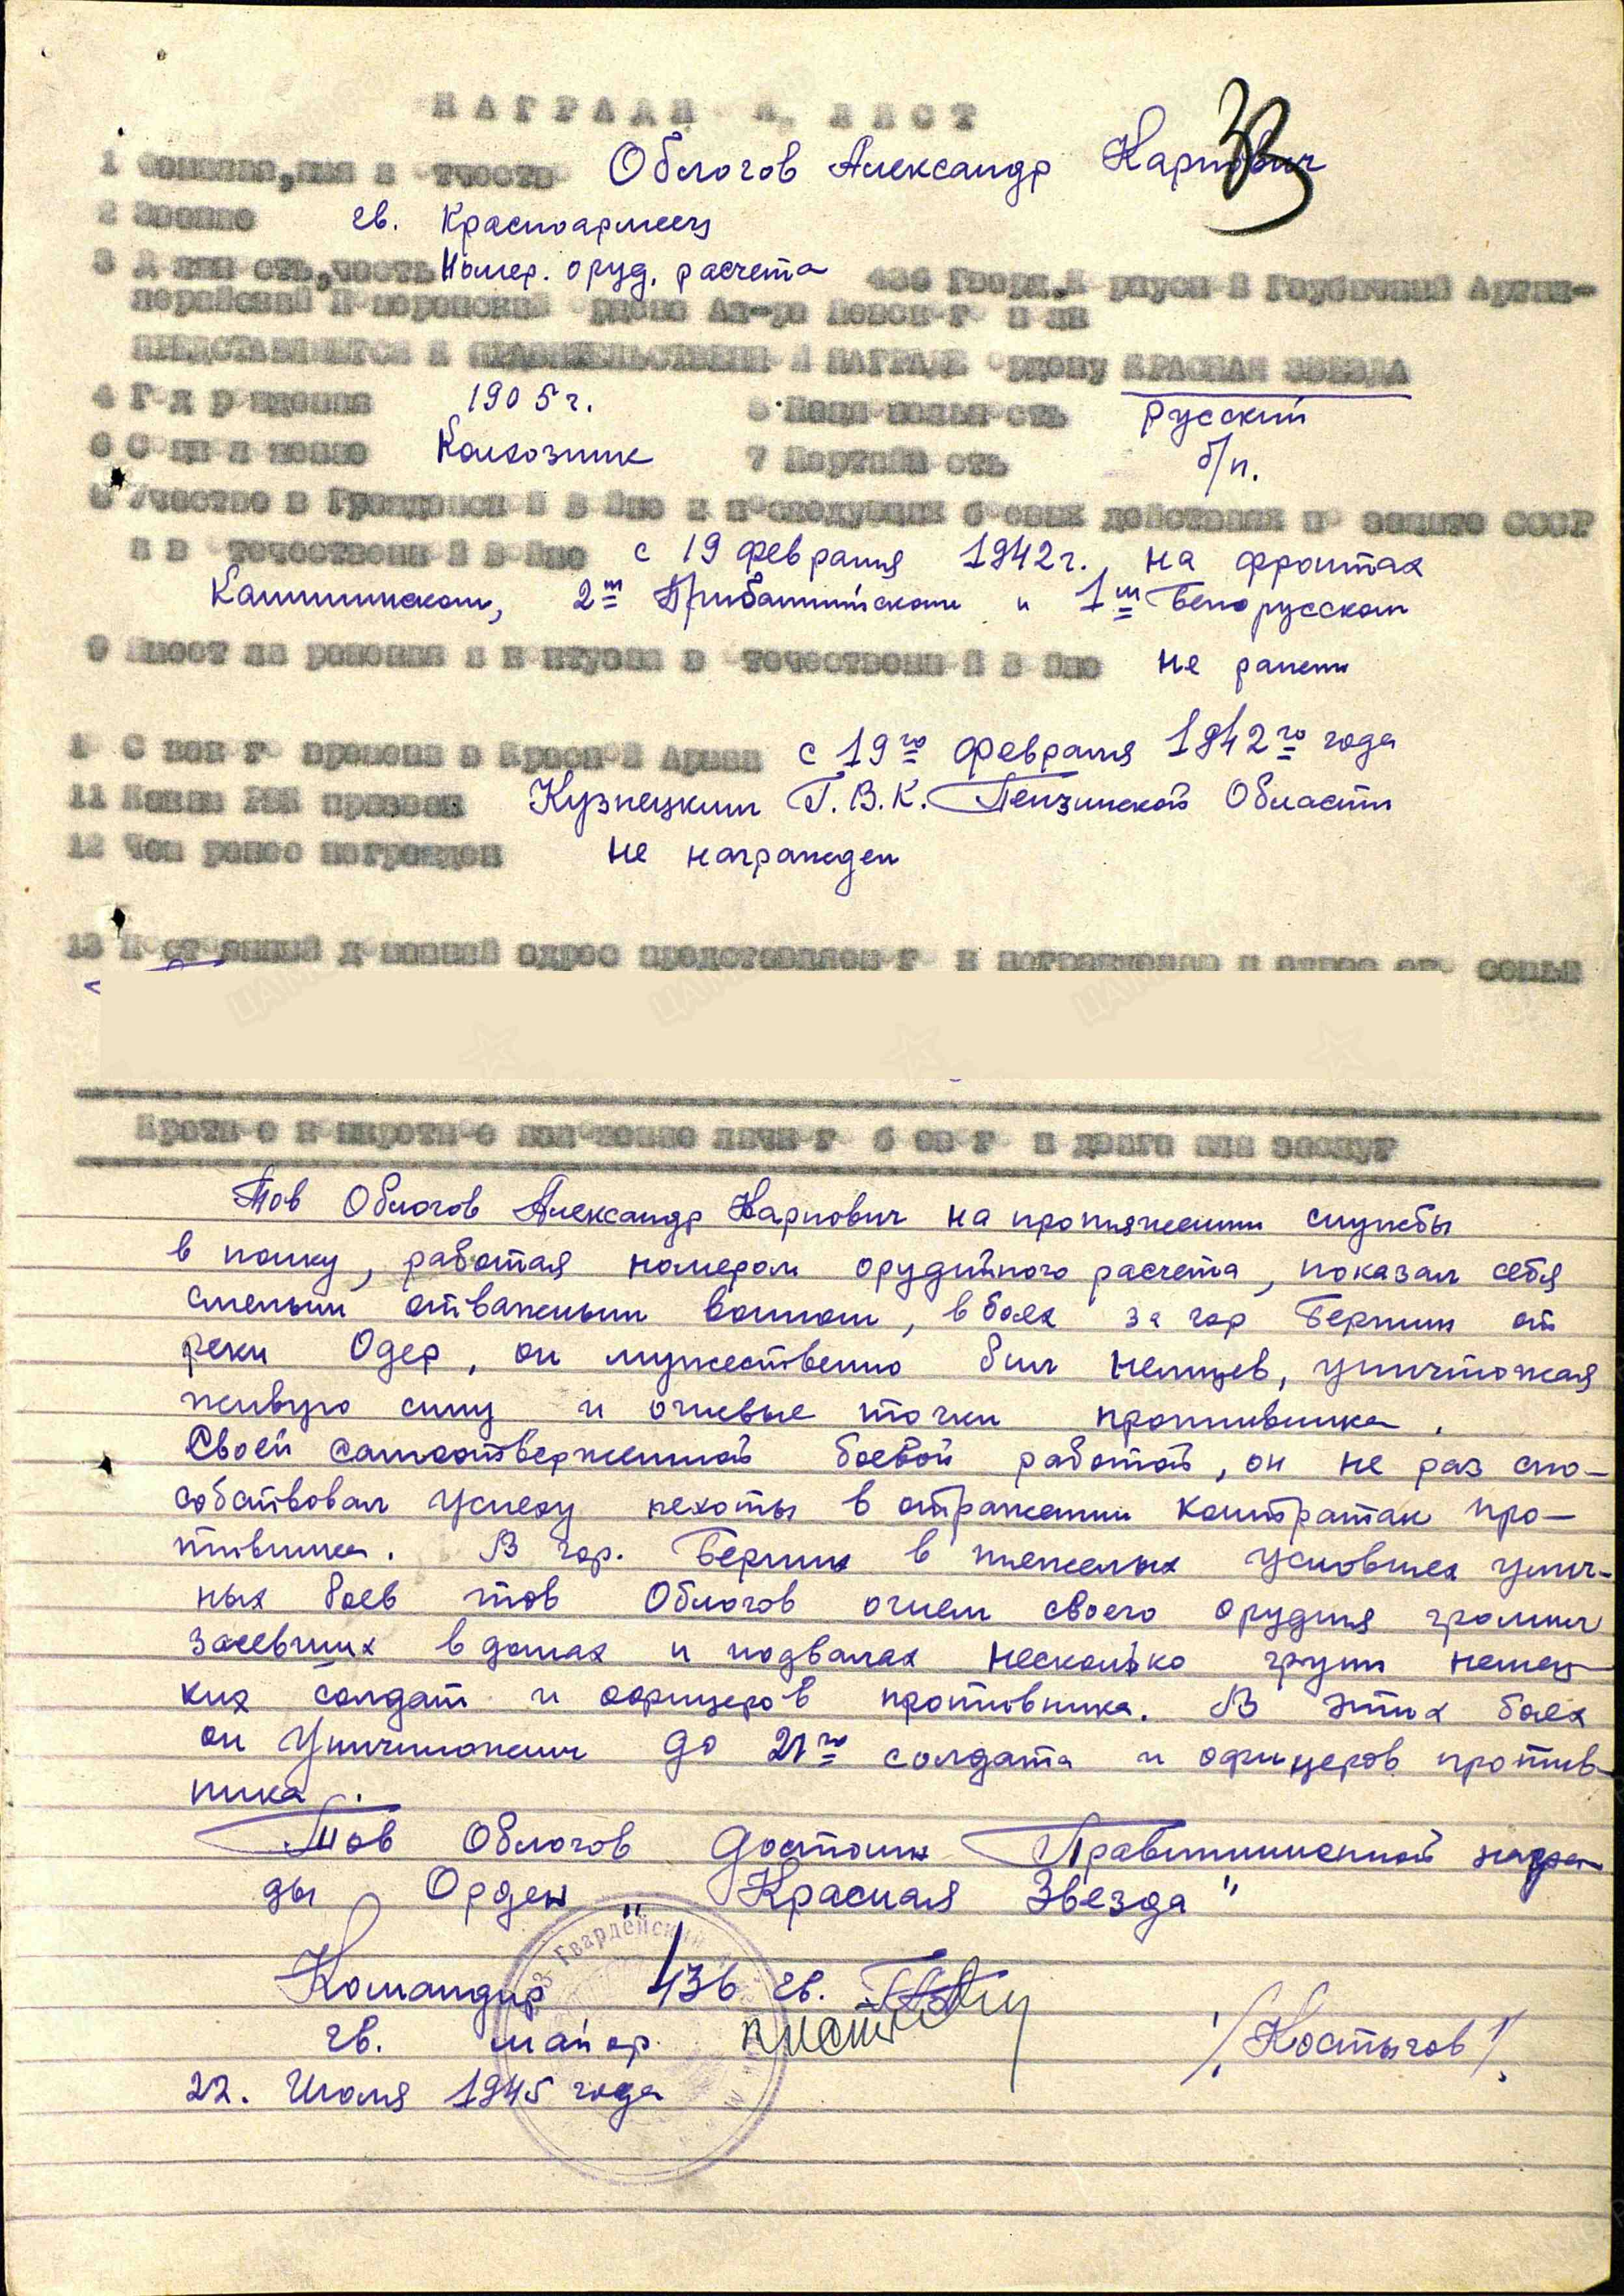 НАГРАДНОЙ ЛИСТ
1 Фамилия, имя и отчество Облогов Александр Карпович
2 Звание гв. Красноармеец
3 Должность, часть Номер. оруд. расчета 436 Гвард. Корпусной Гаубичный Артил-
лерийский ордена Ал-ра Невского полк
ПРЕДСТАВЛЯЕТСЯ К ПРАВИТЕЛЬСТВЕННОЙ НАГРАДЕ ордену КРАСНАЯ ЗВЕЗДА
4 Год рождения 1905 г. 5 Национальность русский
6 Соц положение Колхозник 7 Партийность б/п.
8 Участие в Гражданской войне и последующих боевых действиях по защите СССР
и в отечественной войне с 19 февраля 1942 г. на фронтах
Калининском, 2м Прибалтийском и 1м Белорусском
9 Имеет ли ранения и контузии в отечественной войне не ранен
10 С какого времени в Красной Армии с 19го февраля 1942го года
11 Каким РВК призван Кузнецким Г.В.К. Пензинской Области
12 Чем ранее награжден не награжден
13 Постоянный домашний адрес представляемого к награждению и адрес его семьи
Кратко е конкретно е изложение личного боевого подвига или заслуг
Тов Облогов Александр Карпович на протяжении службы
в полку, работая номером орудийного расчета, показал себя
смелым отважным воином, в боях за гор Берлин от
реки Одер, он мужественно бил немцев, уничтожая
живую силу и огневые точки противника.
Своей самоотверженной боевой работой, он не раз спо-
собствовал успеху пехоты в отражении контратак про-
тивника. В гор. Берлин в тяжелых условиях улич-
ных боев тов Облогов огнем своего орудия громил
засевших в домах и подвалах несколько групп немец-
ких солдат и офицеров противника. В этих боях
он Уничтожил до 21го солдата и офицеров против-
ника.
Тов Облогов достоин Правительственной награ-
ды Орден „Красная Звезда"
Командир 436 гв.
гв. майор /Костыгов/
22. Июля 1945 года
Гвардейский